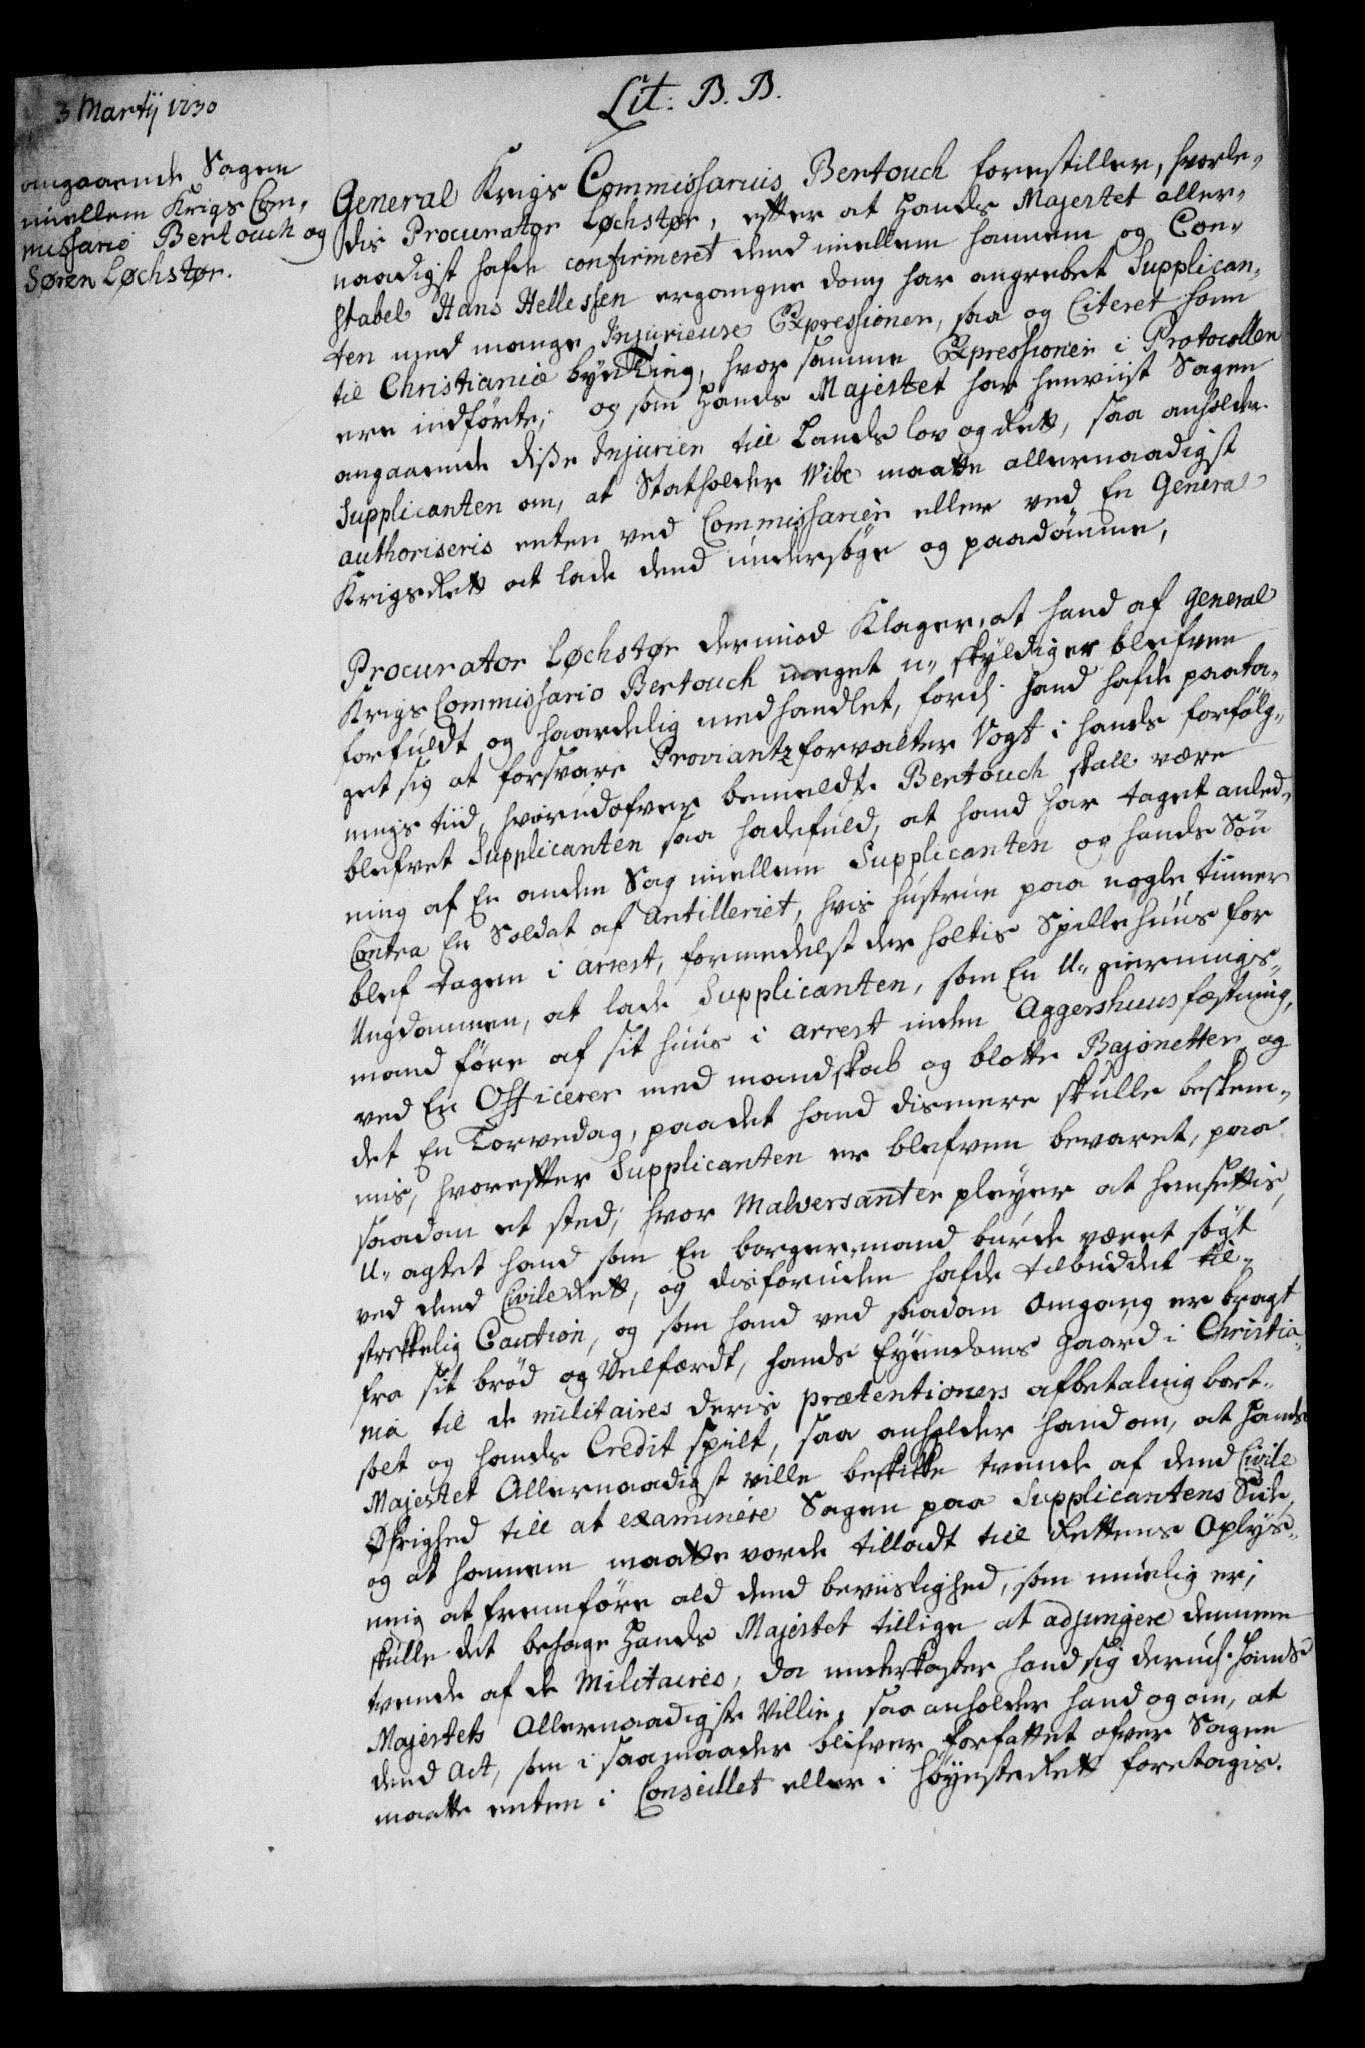 3 Martij 1730
Lit: B. B.
angaaende Sagen
miellem Krigs Com„
missario Bertouch og
Søren Løchstør.
General Krigs Commissarius Bertouch forestiller, hvorle„
dis Procurator Løchstør, efter at Hands Majestet aller„
naadigst hafde confirmeret dend miellem hannem og Con„
stabel Hans Hellessen ergangne dom, har angrebet Supplican„
ten med mange Injurieuse Expressioner, saa og Citeret ham
til Christianiæ byeTing, hvor samme Expressioner i Protocollen
ere indførte; og som Hands Majestet har henviist Sagen
angaaende diße Injurier till Lands lov og Rett, saa anholder
Supplicanten om, at Statholder Wibe maatte allernaadigst
authoriseris enten ved Commissarier eller ved En General
KrigsRett at lade dend undersøge og paadømme,
Procurator Løchstør dermod Klager, at hand af General
Krigs Commissario Bertouch meget u„skyldig er blefven
forfuldt og haardelig medhandlet, fordj hand hafde paata„
get sig at forsvare Proviantzforvalter Vogt i hands forfølg„
nings tiid, hvorudofver bemeldte Bertouch skall være
blefvet Supplicanten saa hadefuld, at hand har taget anled„
ning af En anden Sag miellem Supplicanten og hands Søn
Contra En Soldat af Artilleriet, hvis hustrue paa nogle timer
blef tagen i arrest, formedelst der holtis Spillehuus for
Ungdommen, at lade Supplicanten, som En U„giernings„
mand føre af sit huus i arrest inden Aggershuus fæstning,
ved En Officerer med mandskab og blotte Bajonetter, og
det En Torvedag, paadet hand dismere skulle beskem„
mis, hvorefter Supplicanten er blefven bevaret, paa
saadan et sted, hvor Malversanter pleyer at hensettis,
U„agtet hand som En borger„mand burde været søgt
ved dend CivileRett, og desforuden hafde tilbuddet til„
strekkelig Caution, og som hand ved saadan Omgang er bragt
fra sit brød og Velfærdt, hands Eyendoms Gaard i Christia„
nia til de militaires deris prætentioners afbetaling bort„
solt og hands Credit spilt, saa anholder hand om, at Hands
Majestet Allernaadigst ville beskikke tvende af dend Civile
Øfrighed till at examinere Sagen paa Supplicantens Side,
og at hannem maatte vorde tilladt till Rettens Oplys„
ning at fremføre ald dend beviislighed, som muelig er;
skulle det behage Hands Majestet tillige at adjungere dennem
tvende af de Militaires, da underkaster hand sig derudj Hands
Majestets Allernaadigste Villie, saa anholder hand og om, at
dend Act, som i saamaader blifver forfattet ofver Sagen
maatte enten i Conseillet eller i HøyesteRett foretagis.